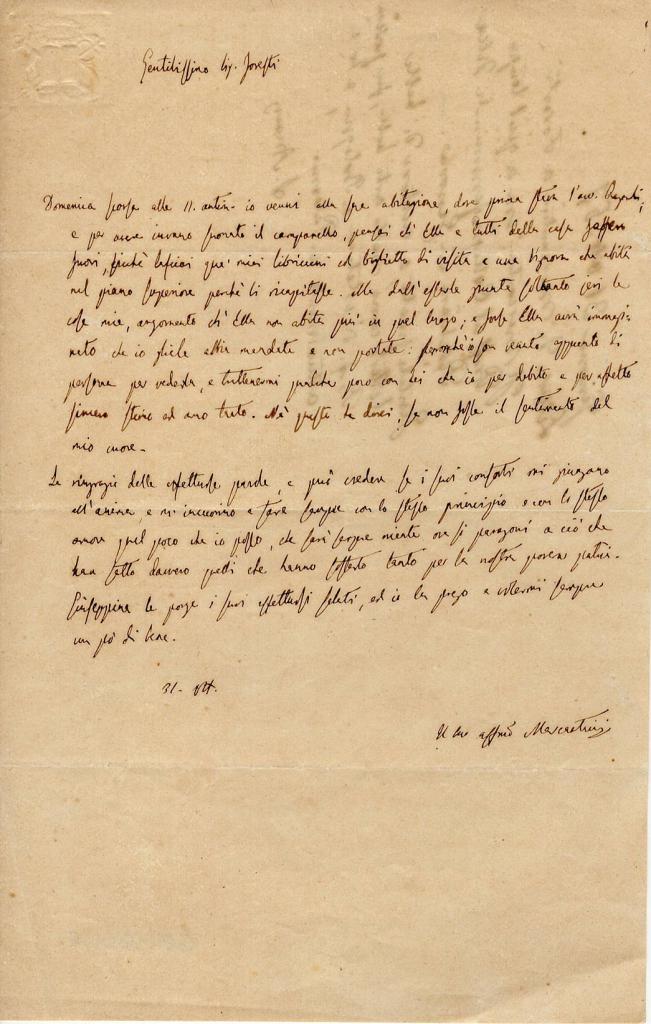 Gentilissimo Sig.
Domenica scorsa alle 11. antim. io venni alla sua abitazione, dove prima stava l'avv.
e per avere invano suonato il campanello, pensai ch'Ella e tutti della casa fossero
fuori, sicchè lasciai que' miei libriccini col biglietto di visita a una Signora che abita
nel piano superiore perchè li ricapitasse. Ma dall'esserle giunte soltanto jeri le
cose mie, argomento ch'Ella non abita più in quel luogo; e forse Ella avrà immagi-
nato che io gliele abbia mandate e non portate: perocchè io son venuto appunto di
persona per vederla, e trattenermi qualche poco con Lei che io per debito e per affetto
sincero stimo ed amo tanto. Nè questo le direi, se non fosse il sentimento del
mio cuore.
La ringrazio delle affettuose parole, e può credere se i suoi conforti mi giungano
all'anima, e m'incuorino a fare sempre con lo stesso principio e con lo stesso
amore quel poco che io posso, che sarà sempre niente ove si paragoni a ciò che
han fatto davvero quelli che hanno sofferto tanto per la nostra povera patria.
Giuseppina le porge i suoi affettuosi saluti, ed io la prego a volermi sempre
un po' di bene.
31. Ott.
Il suo affmo